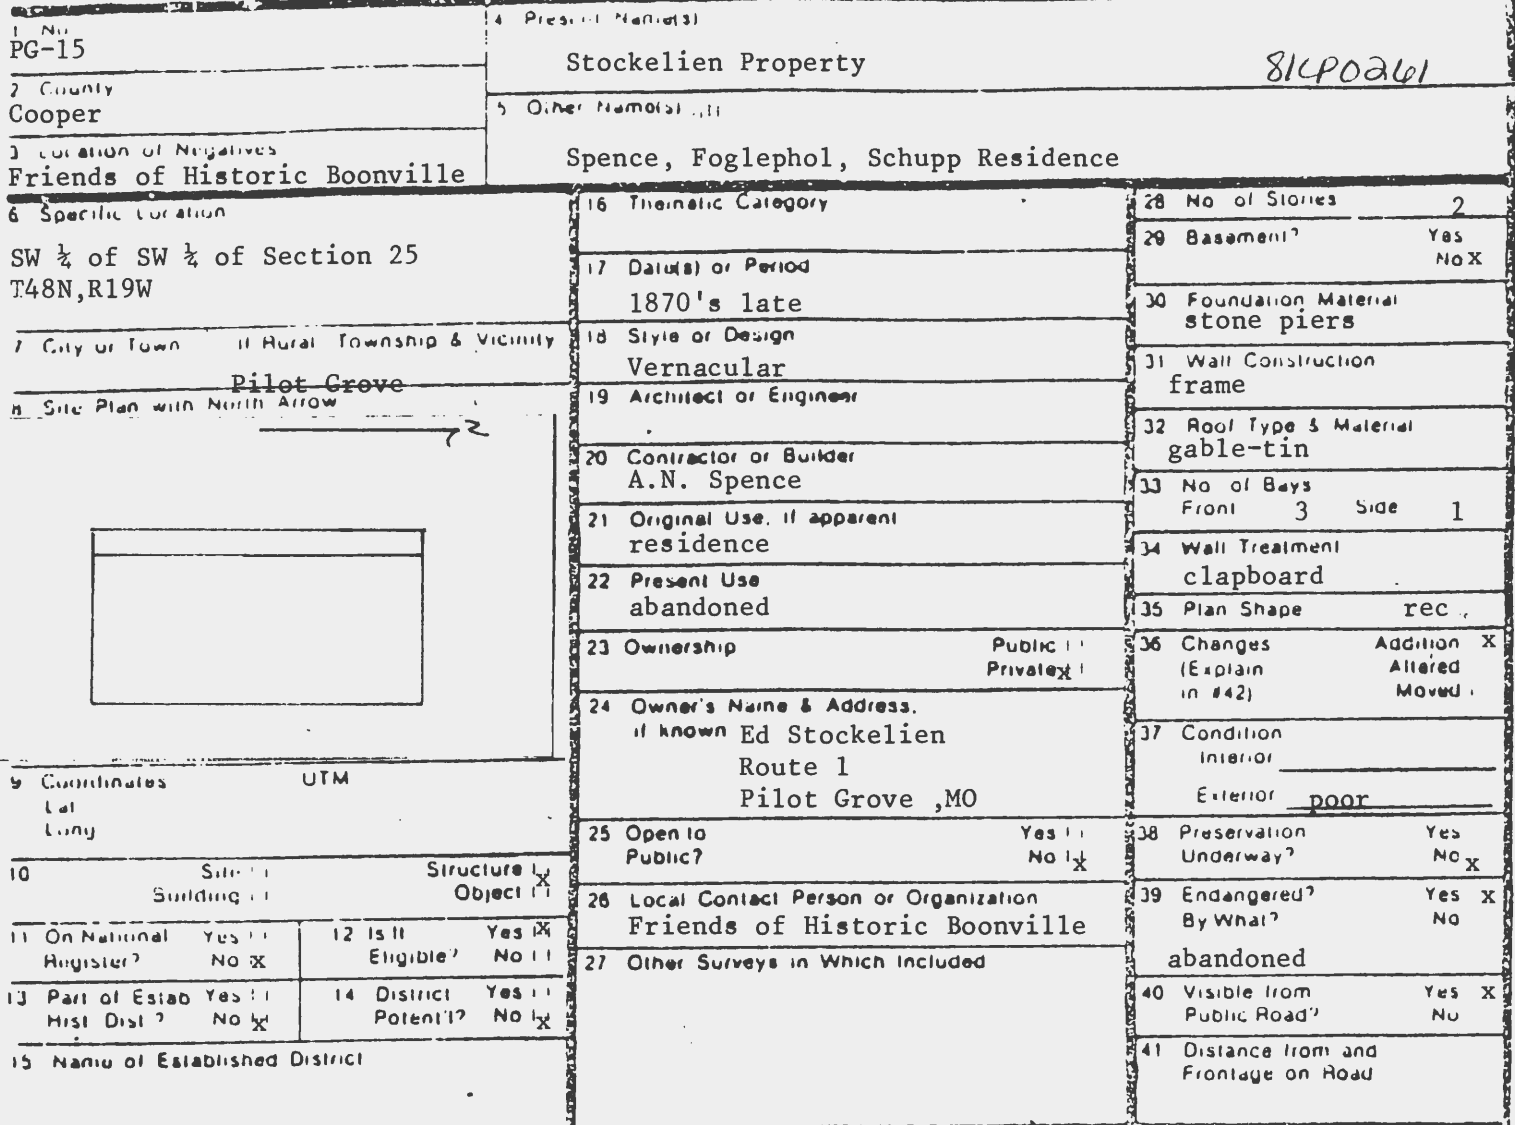 1 No
PG-15
4 Present Name(s)
Stockelien Property
2 County
Cooper
5 Other Name(s)
3 Location of Negatives
Friends of Historic Boonville
Spence, Foglephol, Schupp Residence
6 Specific Location
SW ¼ of SW ¼ of Section 25
T48N,R19W
7 City or Town If Rural Township & Vicinity
Pilot Grove
8 Site Plan with North Arrow
9 Coordinates UTM
Lat
Long
10 Site Structure X
Building Object
11 On National Yes
Register? No X
12 Is It Yes X
Eligible? No
13 Part of Estab Yes
Hist Dist ? No X
14 District Yes
Potent'l? No X
15 Name of Established District
16 Thematic Category
17 Date(s) or Period
1870's late
18 Style or Design
Vernacular
19 Architect or Engineer
20 Contractor or Builder
A.N. Spence
21 Original Use, if apparent
residence
22 Present Use
abandoned
23 Ownership Public
Private X
24 Owner's Name & Address,
if known Ed Stockelien
Route 1
Pilot Grove ,MO
25 Open to Yes
Public? No X
26 Local Contact Person or Organization
Friends of Historic Boonville
27 Other Surveys in Which Included
28 No of Stories 2
29 Basement? Yes
No X
30 Foundation Material
stone piers
31 Wall Construction
frame
32 Roof Type & Material
gable-tin
33 No of Bays
Front 3 Side 1
34 Wall Treatment
clapboard
35 Plan Shape rec
36 Changes Addition X
(Explain Altered
in #42) Moved
37 Condition
Interior
Exterior poor
38 Preservation Yes
Underway? No X
39 Endangered? Yes X
By What? No
abandoned
40 Visible from Yes X
Public Road? No
41 Distance from and
Frontage on Road